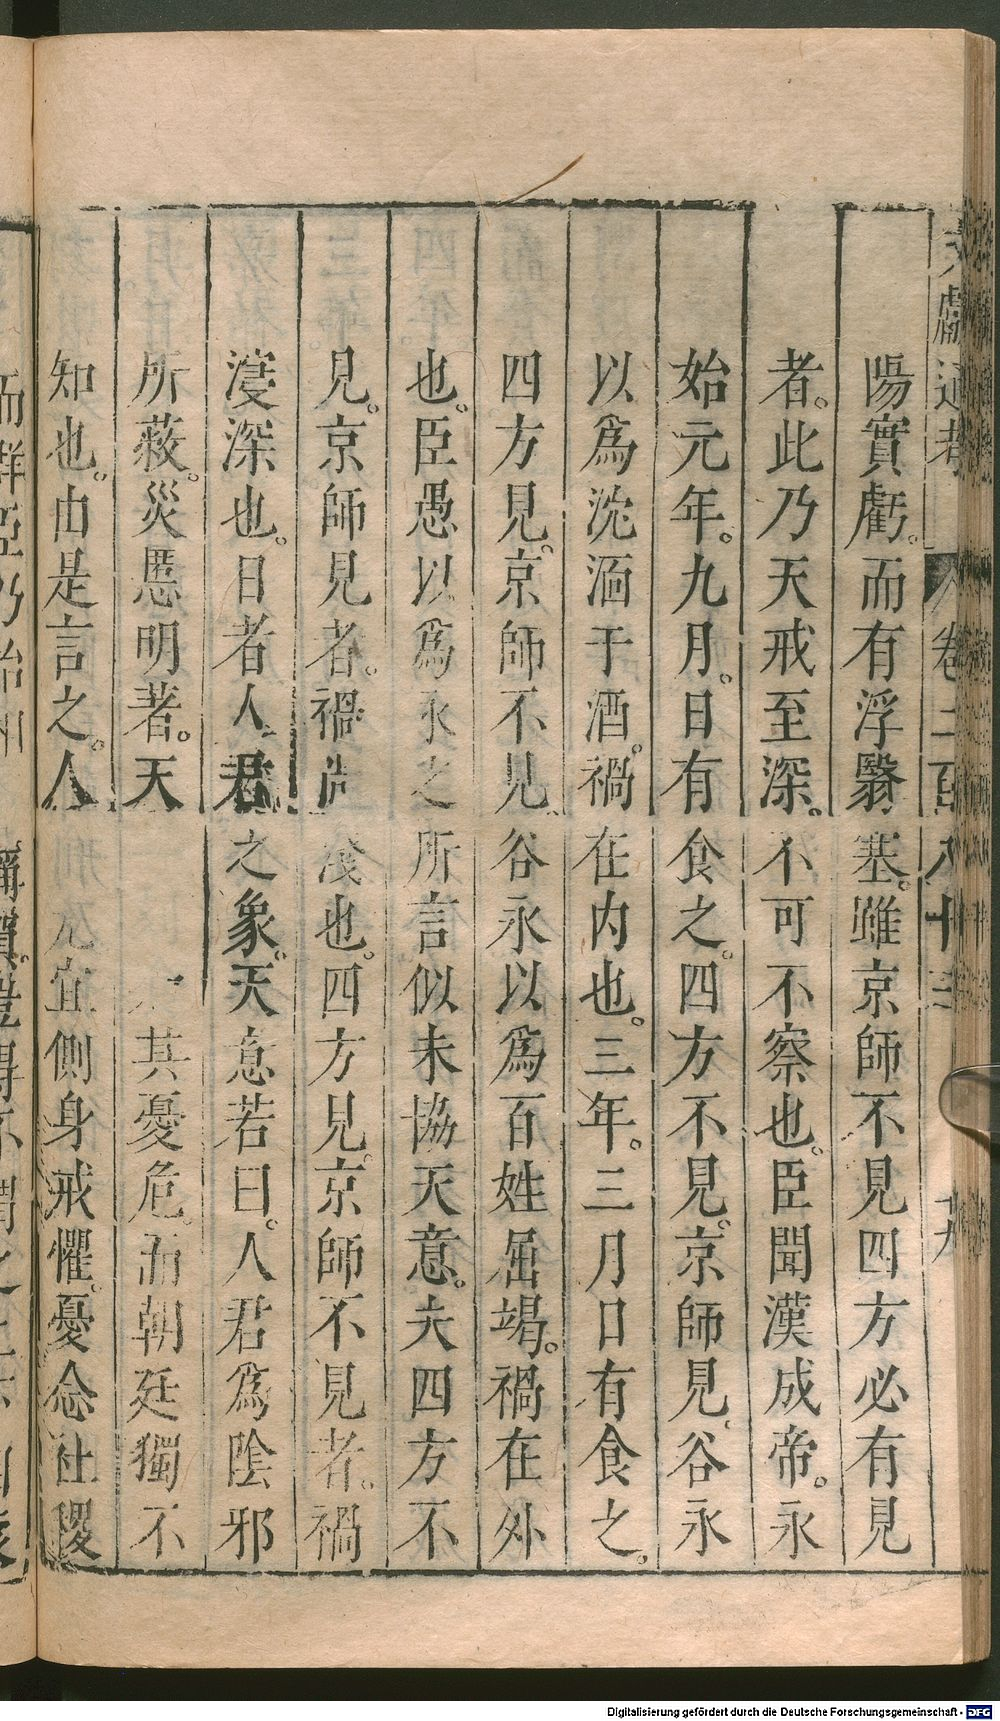 陽實虧。而有浮翳塞。雖京師不見四方必有見
者。此乃天戒至深。不可不察也。臣聞漢成帝。永
始元年。九月。日有食之。四方不見。京師見。谷永
以爲沈湎于酒。禍在内也。三年。三月日有食之。
四方見。京師不見。谷永以爲百姓屈竭。禍在外
也。臣愚以爲永之所言似未協天意。夫四方不
見。京師見者。禍尚淺也。四方見。京師不見者。禍
寖深也。日者人君之象。天意若曰。人君爲陰邪
所蔽。災慝明著。天其憂危。而朝廷獨不
知也。由是言之。人宜側身戒懼。憂念社稷
通考 卷二百八十三 十九
Digitalisierung gefördert durch die Deutsche Forschungsgemeinschaft - DFG